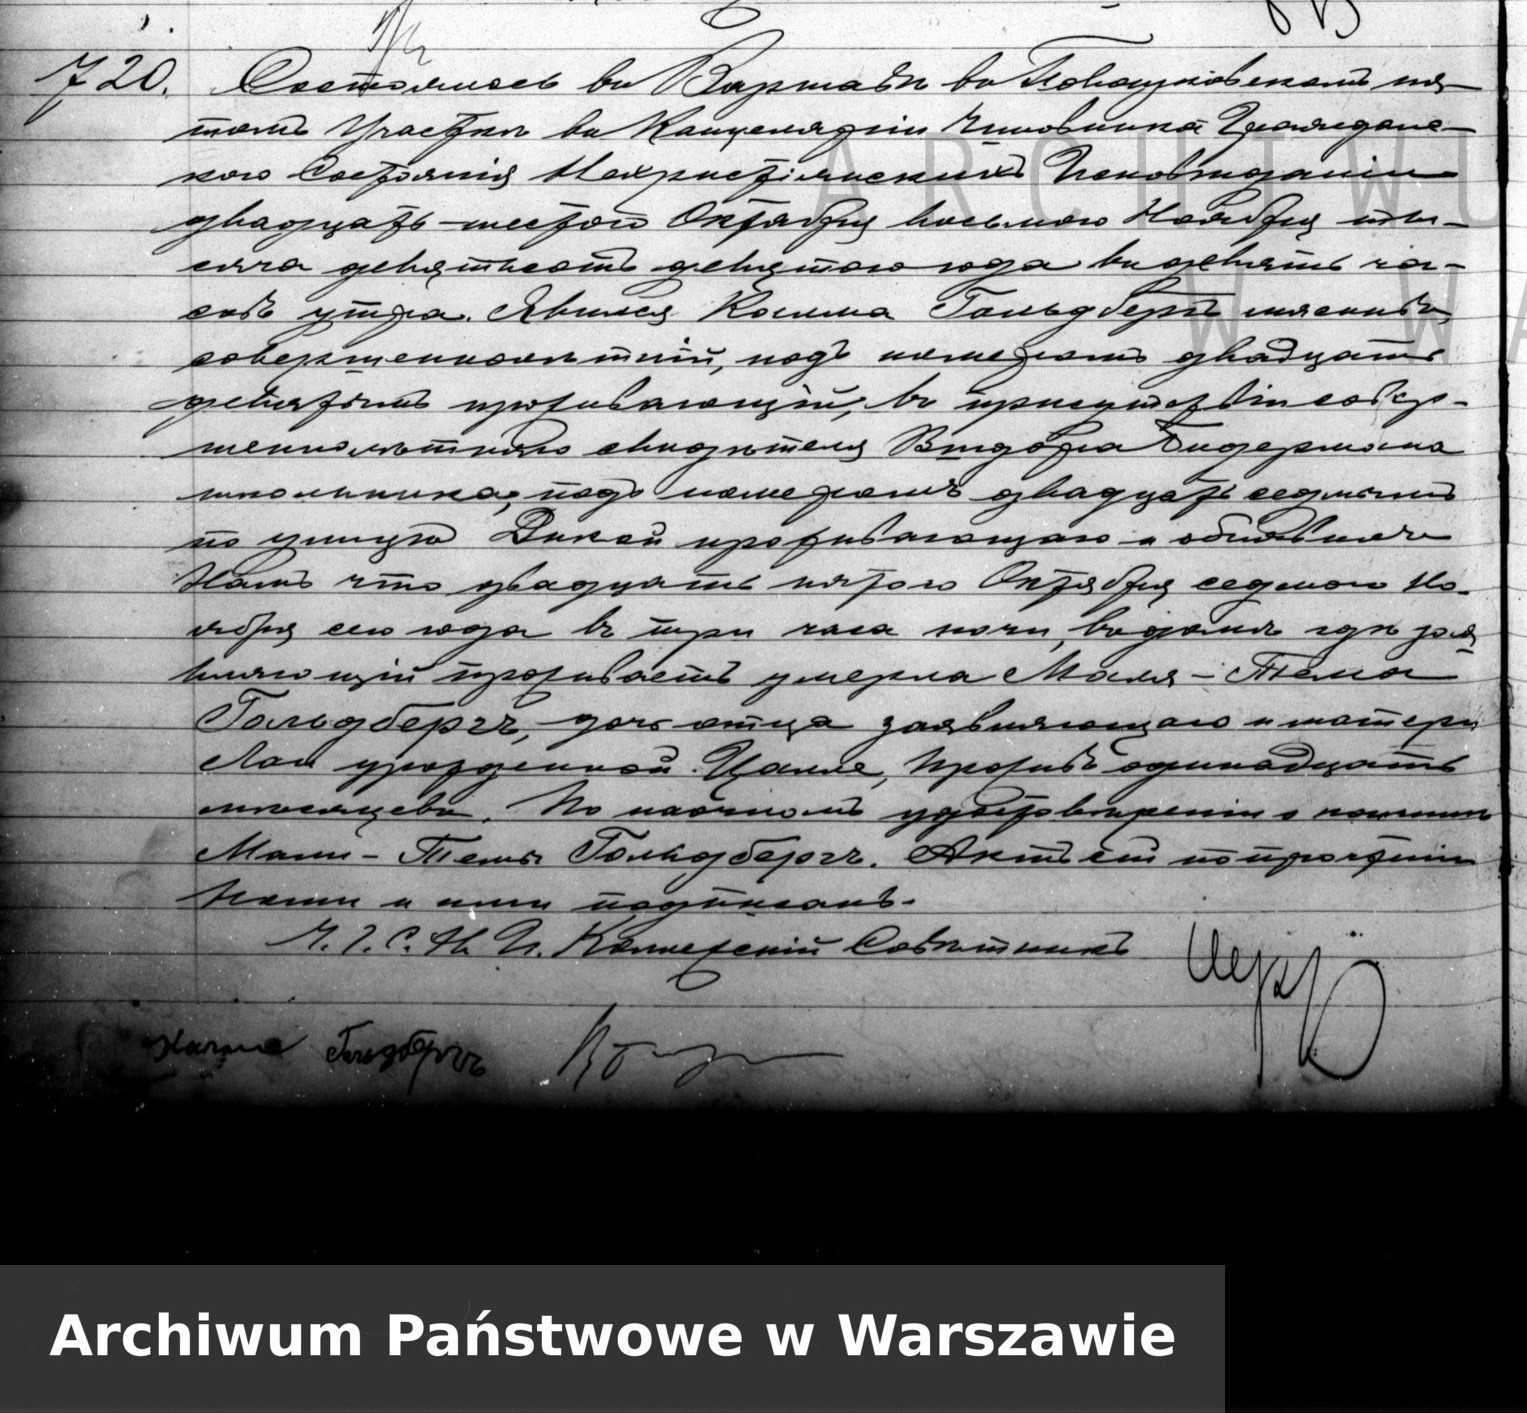 720. Состоялось въ Варшавѣ въ Повонзковскомъ пя-
томъ Участкѣ въ Канцеляріи Чиновника Граждан-
кого Состоянія Нехристіянскихъ Исповѣданій
двадцать-шестого Октября восьмого Ноября ты-
сяча девятьсотъ девятого года въ девять ча-
совъ утра. Явился Гольдбергъ
совершеннолѣтній, подъ номеромъ двадцать
девятымъ проживающій, въ присутствіи совер-
шеннолѣтняго свидѣтеля Бидермана
школьника, подъ номеромъ двадцать седьмымъ
по улицѣ Дикой проживающаго и объявилъ
Намъ что двадцать пятого Октября седьмого Но-
ября сего года въ три часа ночи, въ домѣ гдѣ зая
вляющій проживаетъ умерла Маля-Тема
Гольдбергъ, дочь отца заявляющаго и матери
Лаи урожденной Цалле, проживъ одинадцать
мѣсяцевъ. По наочномъ удостовѣреніи о кончинѣ
Мали-Темы Гольдбергъ. Актъ сей по прочтеніи
Нами и ими подписанъ.
Ч. Г. С. Н. И. Коллежскій Совѣтникъ
Гольдбергъ
Archiwum Państwowe w Warszawie